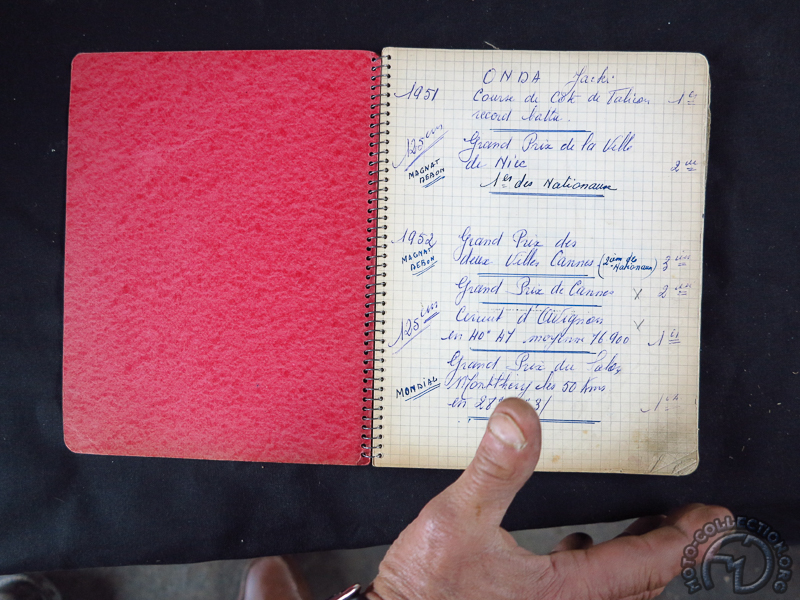 ONDA Jacki
1951 Course de Côte de 1er
record battu.
125 cm Grand Prix de la Ville
MAGNAT DEBON de Nice 2me
1er des Nationaux
1952 Grand Prix des
MAGNAT DEBON deux Villes Cannes (2em des Nationaux) 3me
Grand Prix de Cannes x 2me
125 cm Circuit d'Avignon x
en 40' 47 moyenne 76 900 1er
Grand Prix du Salon
MONDIAL Montlhery les 50 Kms
en 1er
MOTO-COLLECTION.ORG